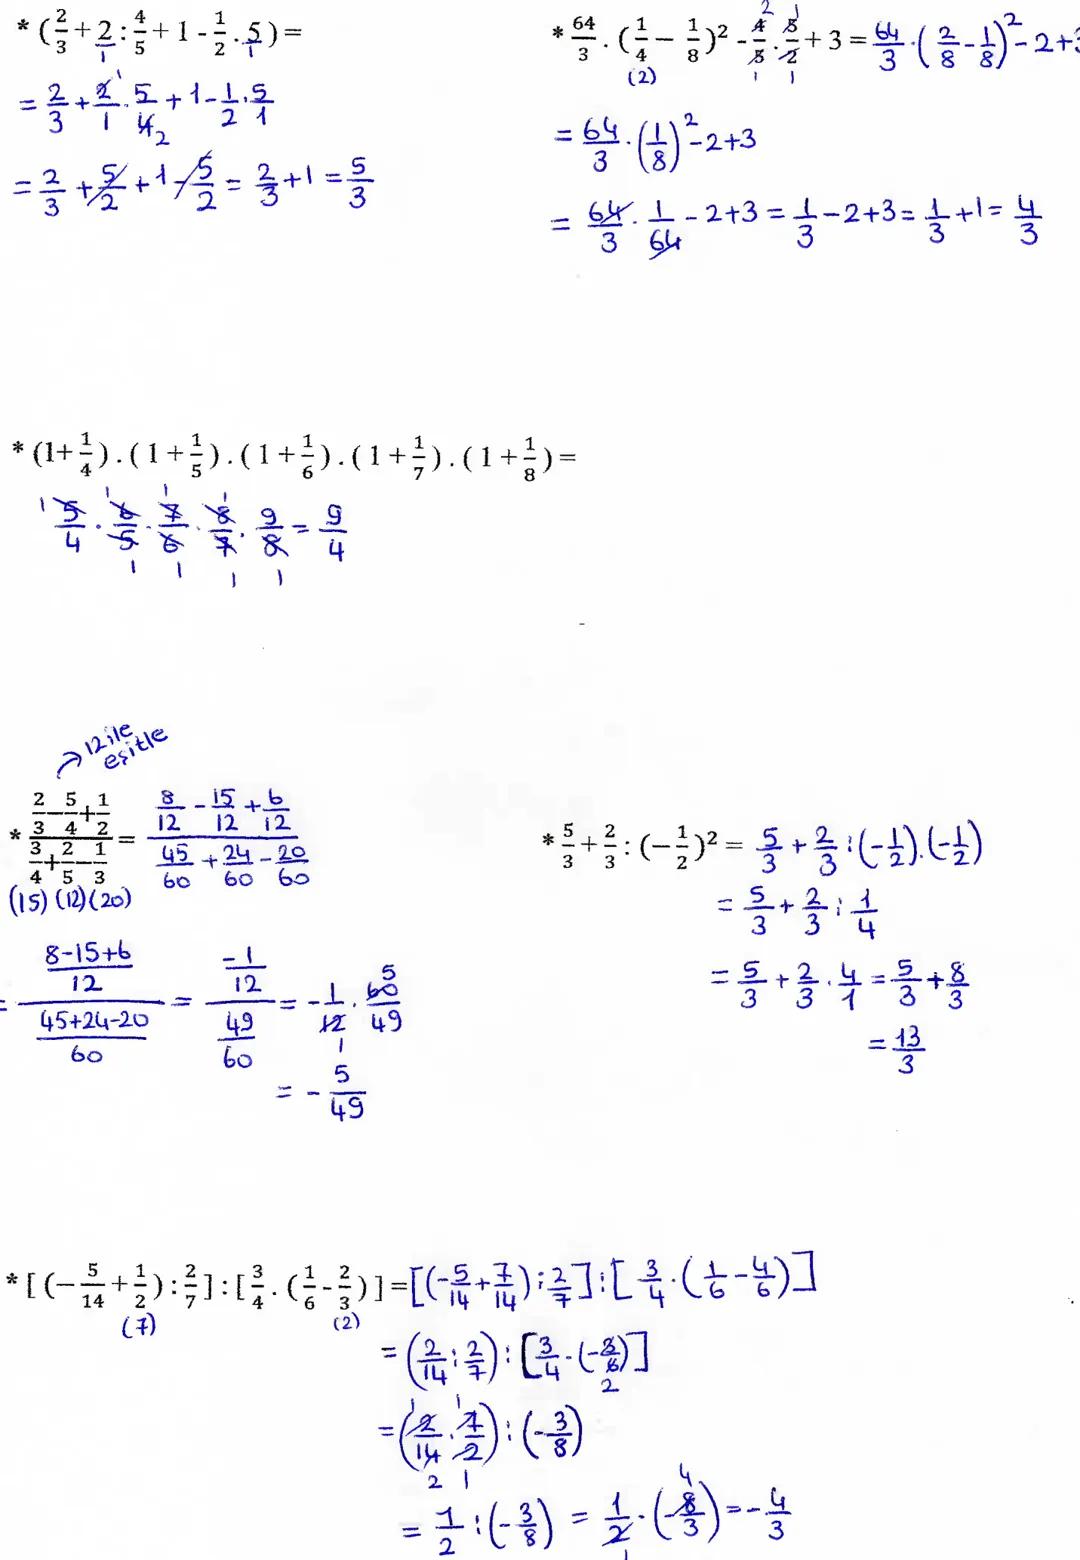 * (2/3 + 2 : 4/5 + 1 - 1/2 . 5) =
= 2/3 + 2/1 . 5/4 + 1 - 1/2 . 5/1
= 2/3 + 5/2 + 1 - 5/2 = 2/3 + 1 = 5/3
* 64/3 . (1/4 - 1/8)² - 4/5 . 5/2 + 3 = 64/3 . (2/8 - 1/8)² - 2 + 3
(2)
= 64/3 . (1/8)² - 2 + 3
= 64/3 . 1/64 - 2 + 3 = 1/3 - 2 + 3 = 1/3 + 1 = 4/3
* (1+ 1/4) . (1 + 1/5) . (1 + 1/6) . (1 + 1/7) . (1 + 1/8) =
5/4 . 6/5 . 7/6 . 8/7 . 9/8 = 9/4
12 ile
eşitle
* (2/3 - 5/4 + 1/2)/(3/4 + 2/5 - 1/3) = (8/12 - 15/12 + 6/12)/(45/60 + 24/60 - 20/60)
(15) (12) (20)
= ((8-15+6)/12)/((45+24-20)/60) = (-1/12)/(49/60) = -1/12 . 60/49
= - 5/49
* 5/3 + 2/3 : (-1/2)² = 5/3 + 2/3 : (-1/2).(-1/2)
= 5/3 + 2/3 : 1/4
= 5/3 + 2/3 . 4/1 = 5/3 + 8/3
= 13/3
* [ (-5/14 + 1/2) : 2/7 ] : [ 3/4 . (1/6 - 2/3) ] = [(-5/14 + 7/14) : 2/7] : [3/4 . (1/6 - 4/6)]
(7) (2)
= (2/14 : 2/7) : [3/4 . (-3/6)]
= (2/14 . 7/2) : (-3/8)
= 1/2 : (-3/8) = 1/2 . (-8/3) = -4/3